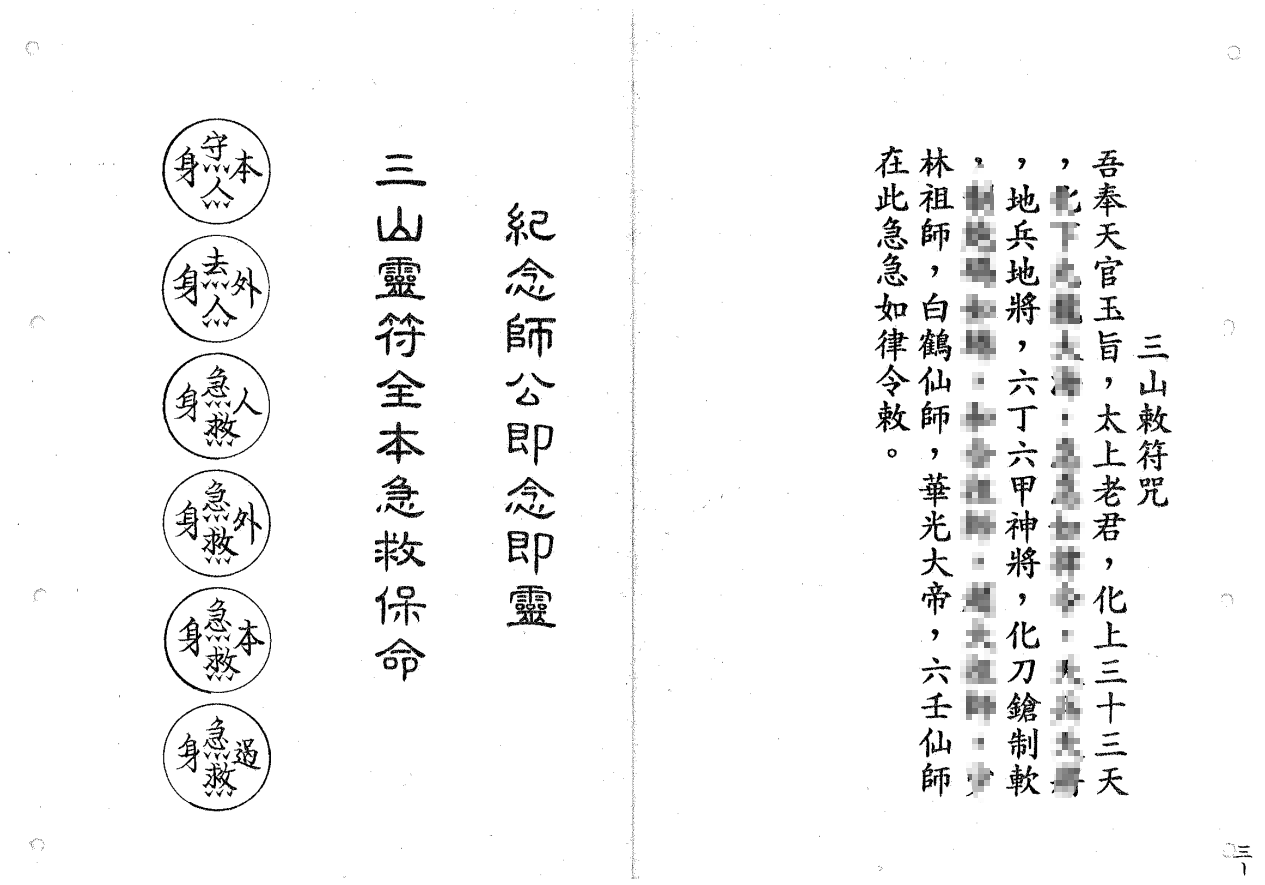 三山敕符咒
吾奉天官玉旨，太上老君，化上三十三天
，地兵地將，六丁六甲神將，化刀鎗制軟
林祖師，白鶴仙師，華光大帝，六壬仙師
在此急急如律令敕。
三一
紀念師公即念即靈
三山靈符全本急救保命
本守人身
外去人身
人急救身
外急救身
本急救身
過急救身